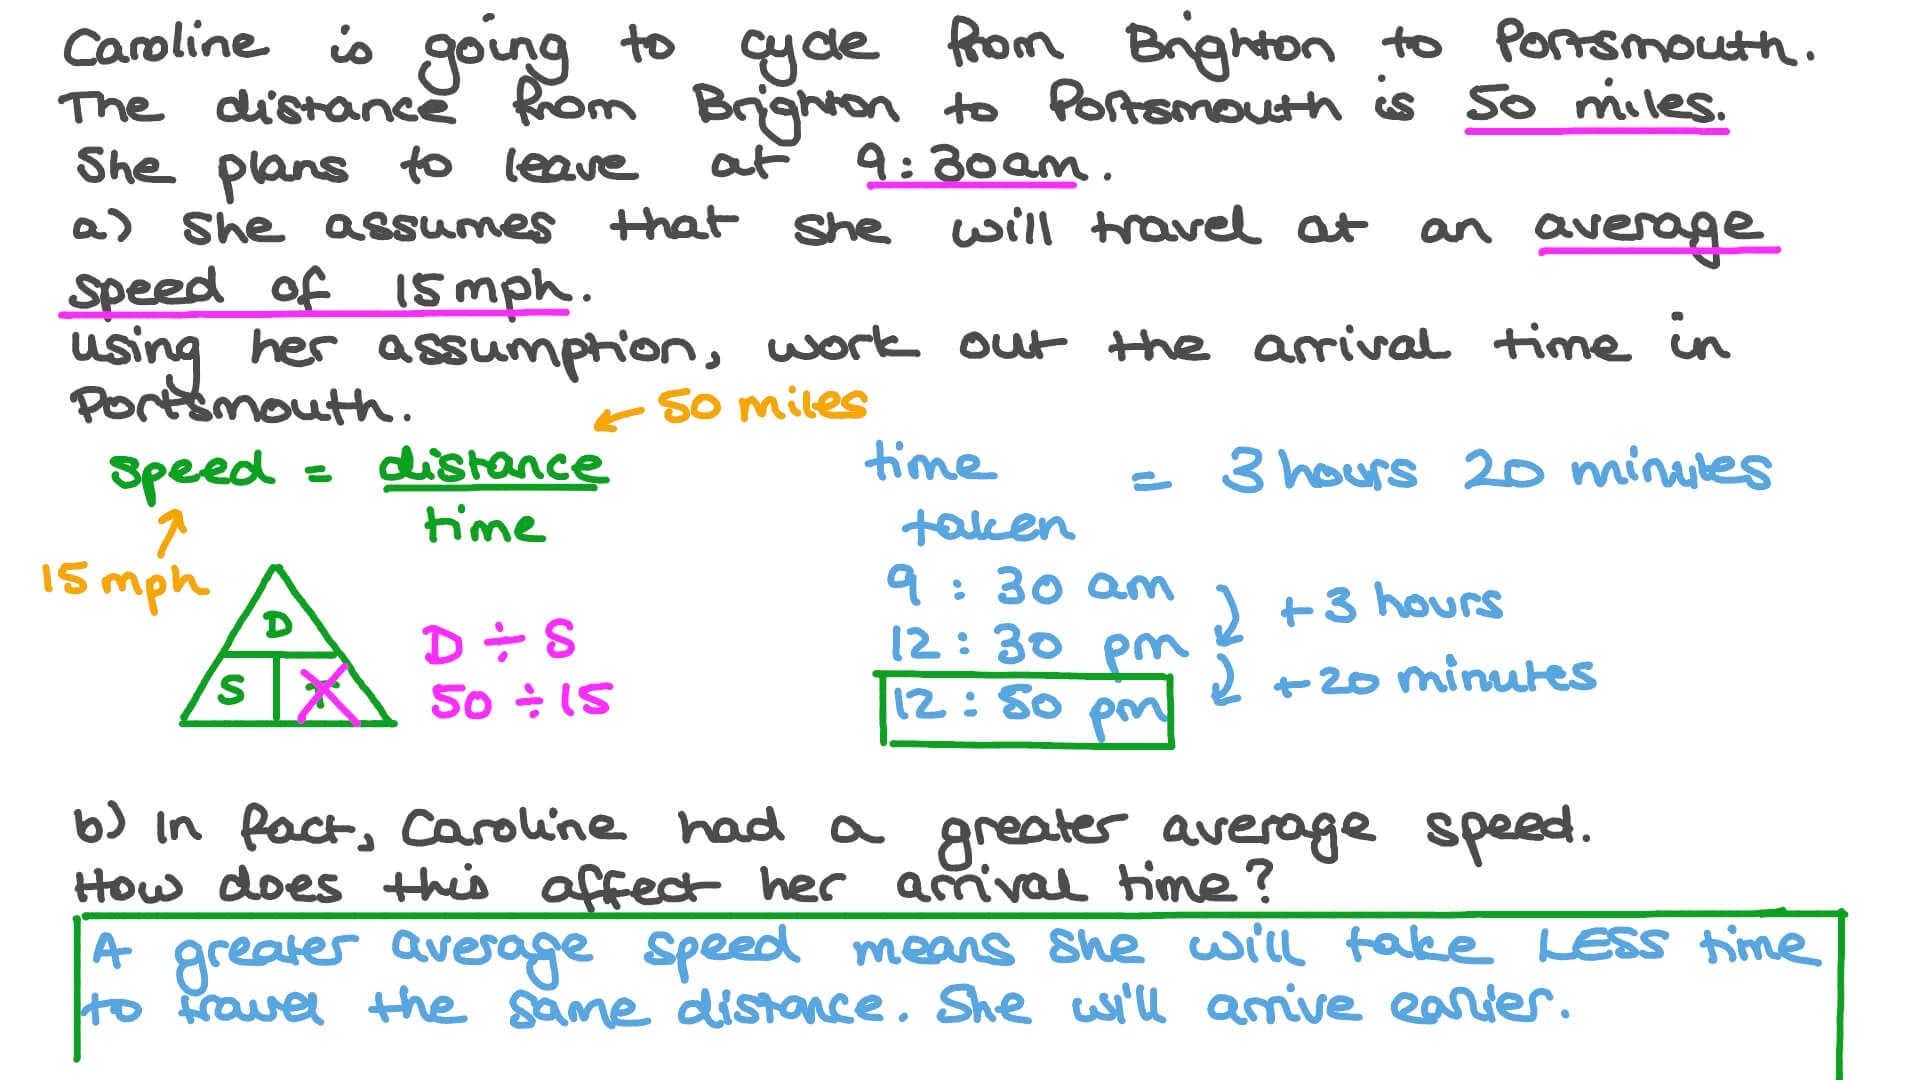 Caroline is going to cycle from Brighton to Portsmouth.
The distance from Brighton to Portsmouth is 50 miles.
She plans to leave at 9:30am.
a) She assumes that she will travel at an average
speed of 15mph.
using her assumption, work out the arrival time in
Portsmouth.
50 miles
speed = distance
time
15 mph
D
S T
D ÷ S
50 ÷ 15
time = 3 hours 20 minutes
taken
9:30 am
+3 hours
12:30 pm
+20 minutes
12:50 pm
b) In fact, Caroline had a greater average speed.
How does this affect her arrival time?
A greater average speed means she will take LESS time
to travel the same distance. She will arrive earlier.